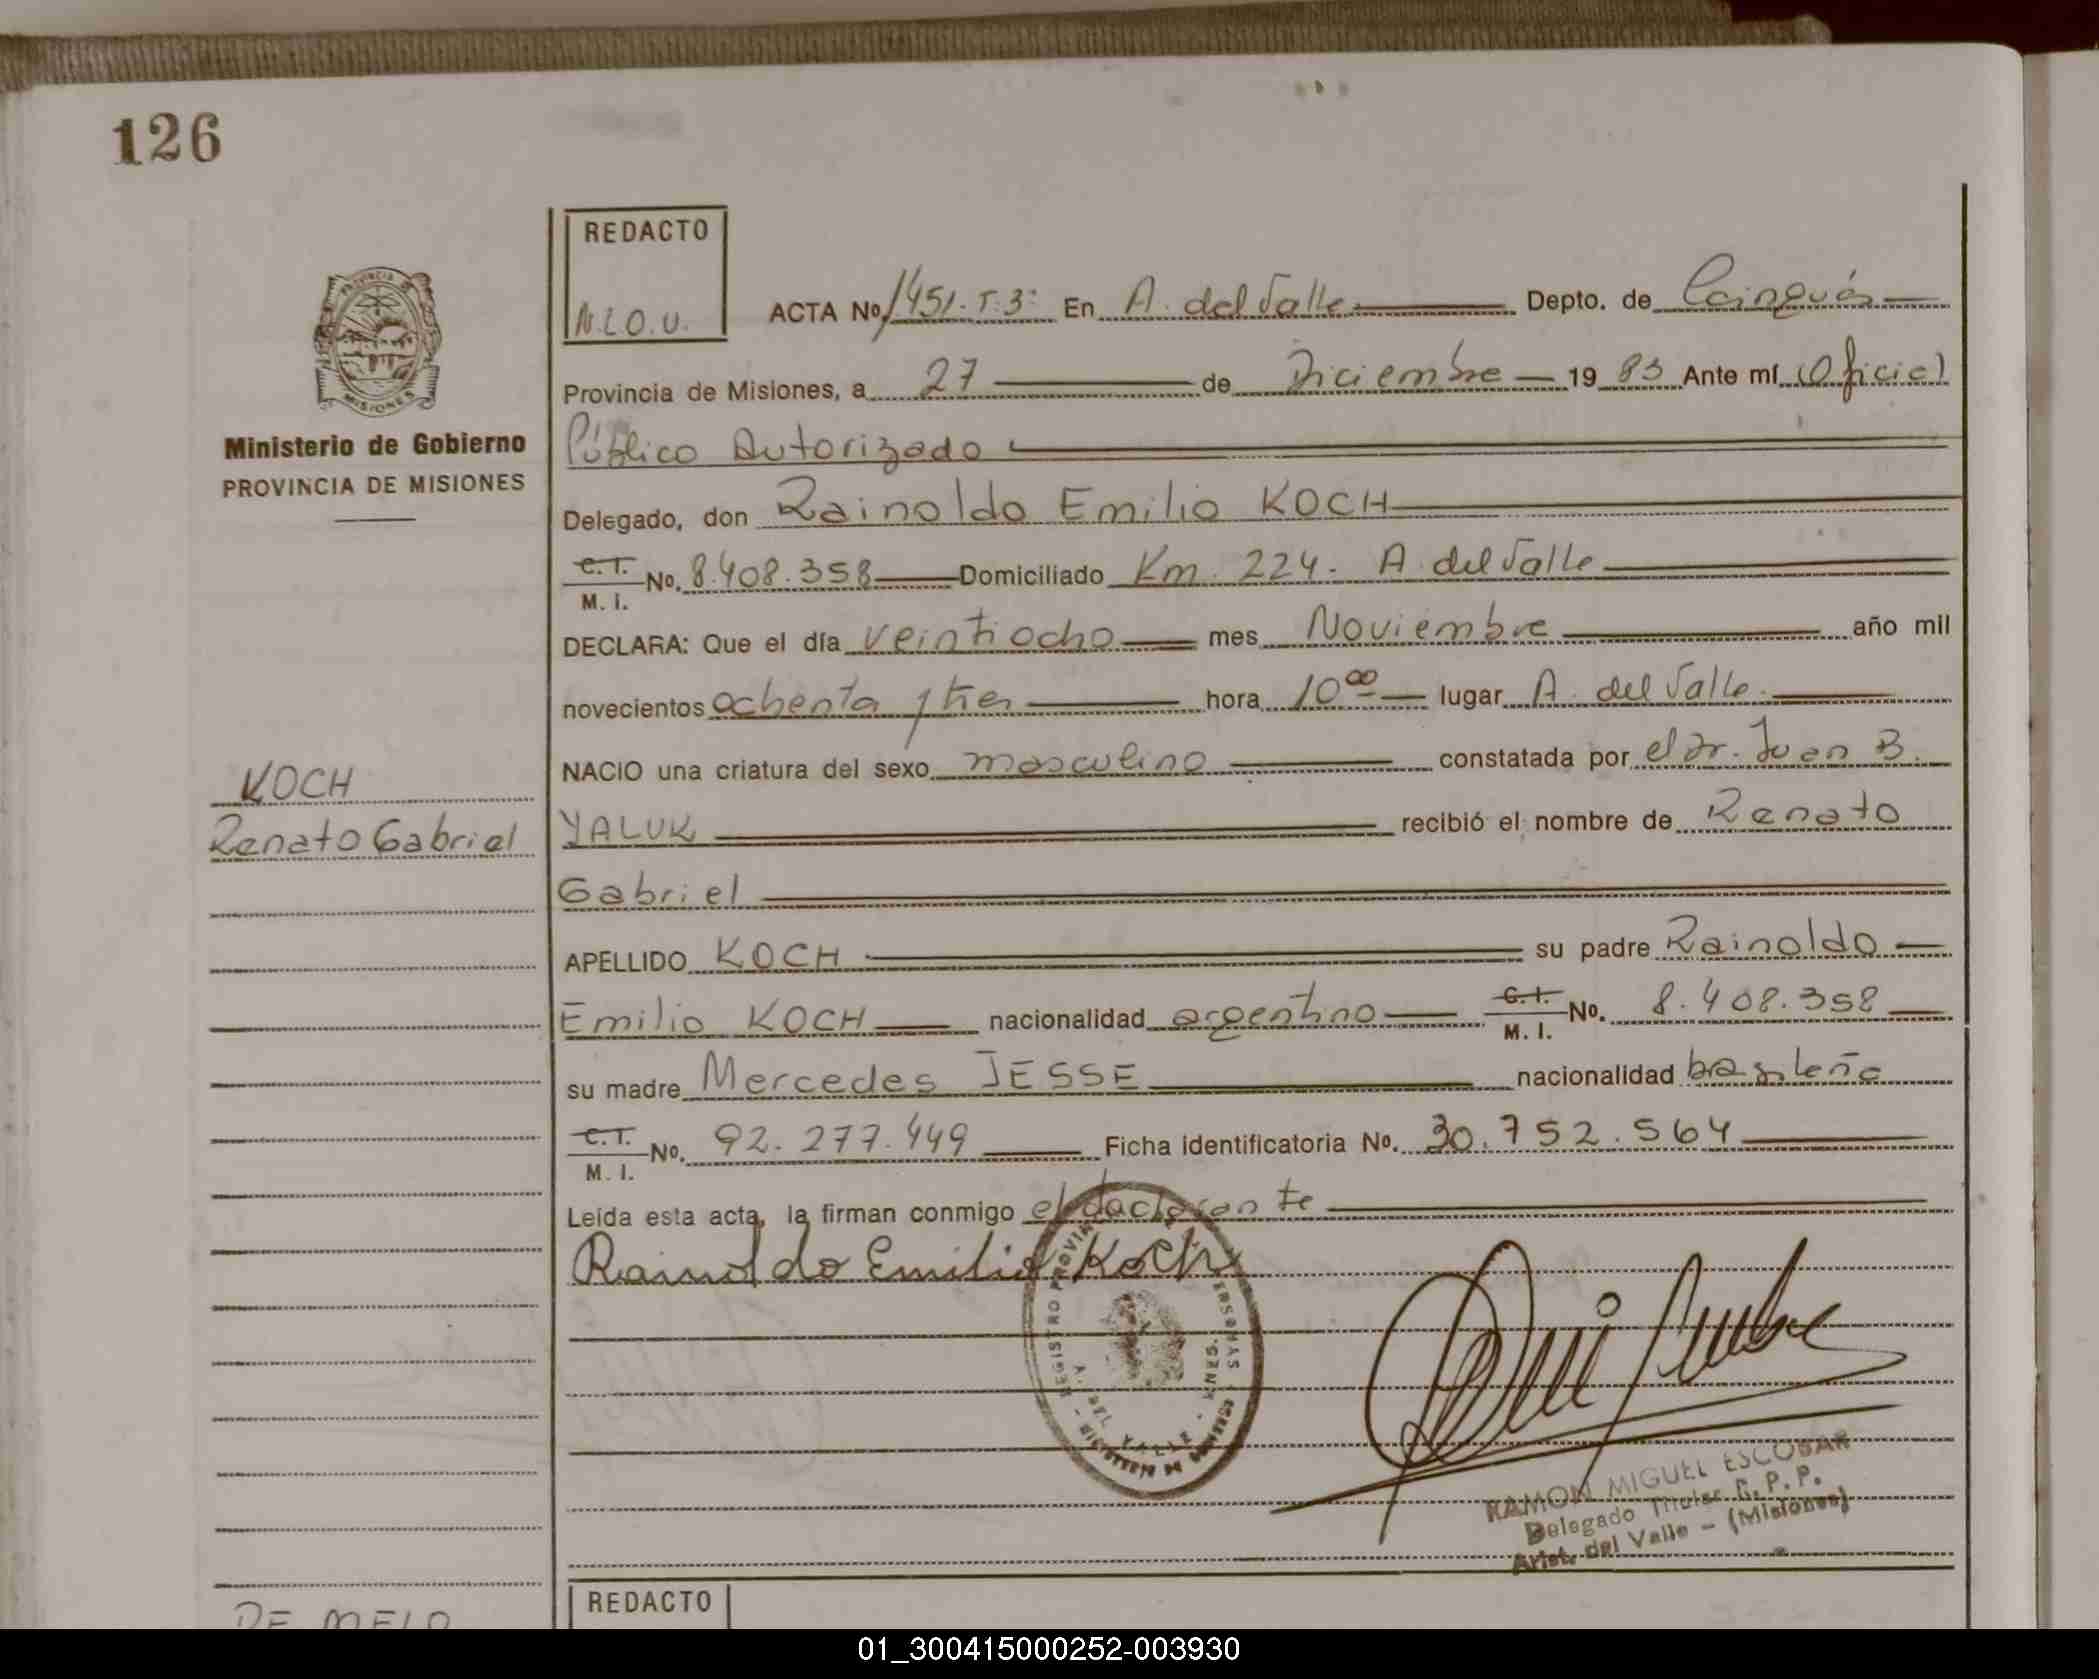 126
REDACTO
N.L.O.U.
ACTA No. 1451-T.3º En A. del Valle Depto. de Cainguás
Provincia de Misiones, a 27 de Diciembre 19 83 Ante mí (Oficial
Ministerio de Gobierno
PROVINCIA DE MISIONES
Público Autorizado
Delegado, don Rainoldo Emilio KOCH
C.I. M. I. No. 8.408.358 Domiciliado Km. 224. A. del Valle
DECLARA: Que el día veintiocho mes Noviembre año mil
novecientos ochenta y tres hora 10⁰⁰ lugar A. del Valle
NACIO una criatura del sexo masculino constatada por el Dr. Juan B.
KOCH
Renato Gabriel
YALUK recibió el nombre de Renato
Gabriel
APELLIDO KOCH su padre Rainoldo
Emilio KOCH nacionalidad argentino C.I. M. I. No. 8.408.358
su madre Mercedes JESSE nacionalidad brasileña
C.I. M. I. No. 92.277.449 Ficha identificatoria No. 30.752.564
Leída esta acta, la firman conmigo el declarante
Rainoldo Emilio Koch
REGISTRO PROVIN PERSONAS
A. DEL VALLE - MNES.
MINISTERIO DE GOBIERNO
RAMON MIGUEL ESCOBAR
Delegado Titular R. P. P.
Arist. del Valle - (Misiones)
DE MELO
REDACTO
01_300415000252-003930